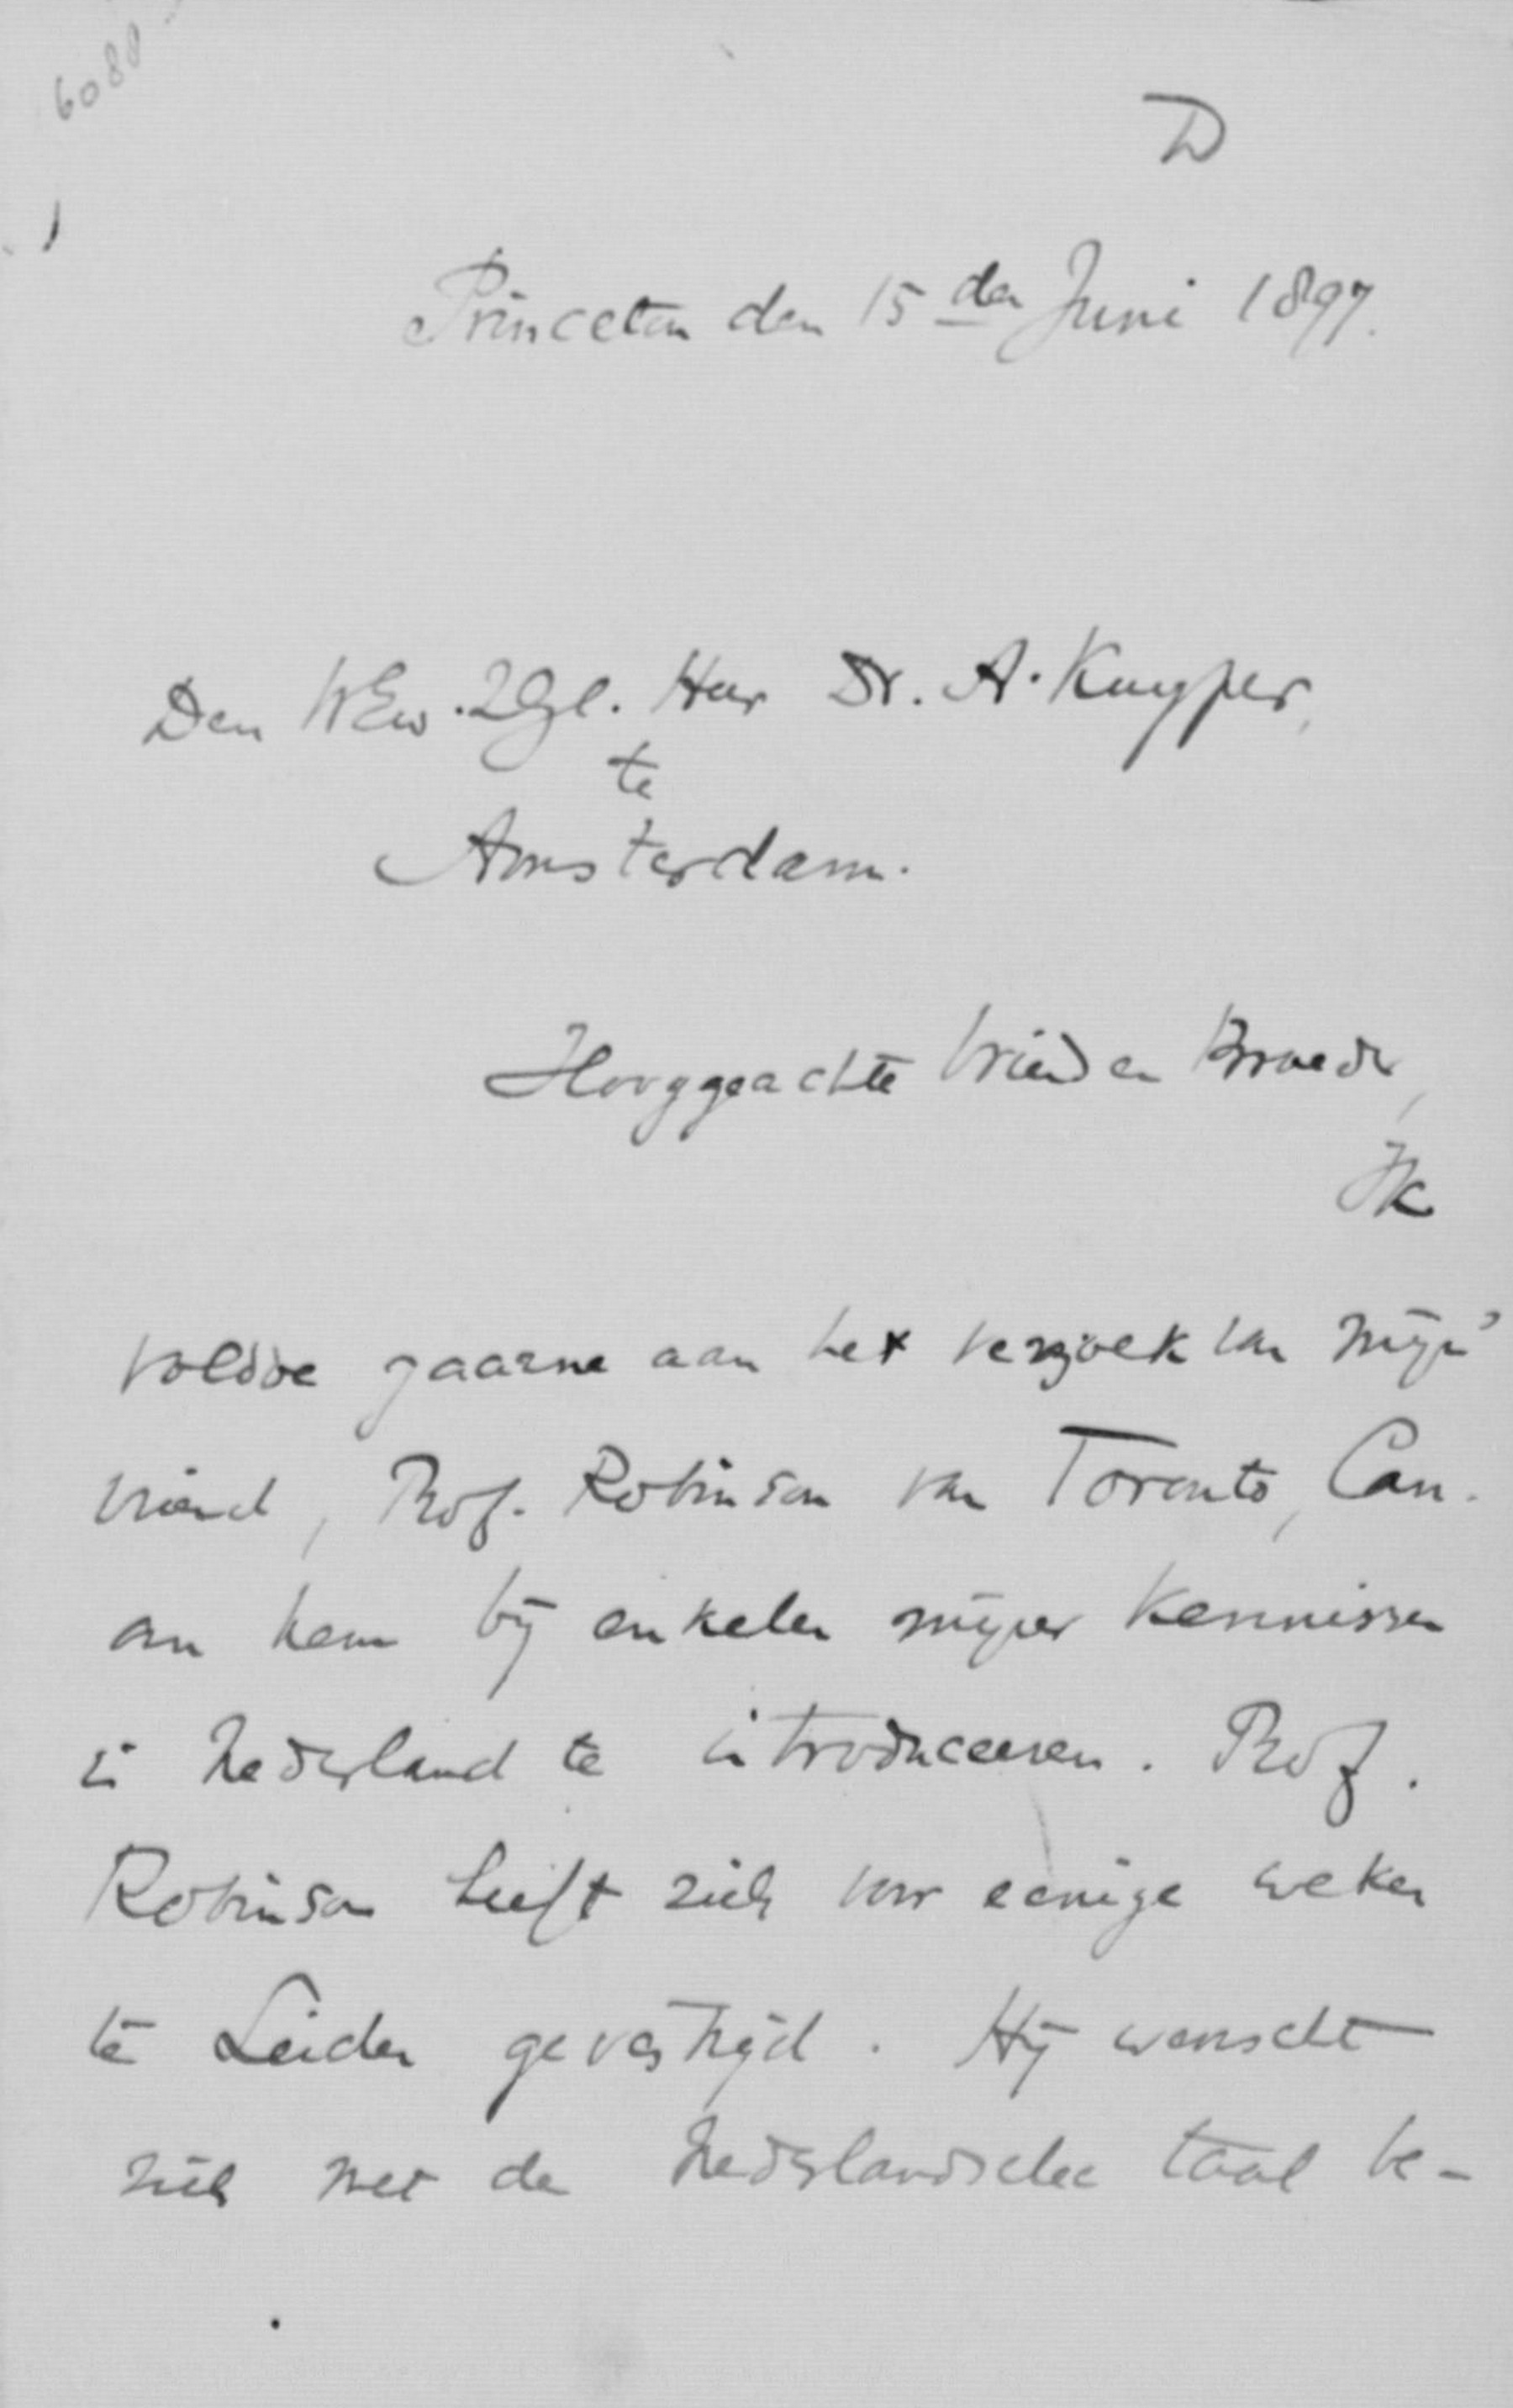 6080
D
Princeton den 15den Juni 1897.
Den WEw. ZGel. Heer Dr. A. Kuyper,
te
Amsterdam.
Hooggeachte Vriend en Broeder,
Ik
voldoe gaarne aan het verzoek van mijn
vriend, Prof. Robinson van Toronto, Can.
om hem bij enkelen mijner kennissen
in Nederland te introduceeren. Prof.
Robinson heeft zich voor eenige weken
te Leiden gevestigd. Hij wenscht
zich met de Nederlandsche taal be-